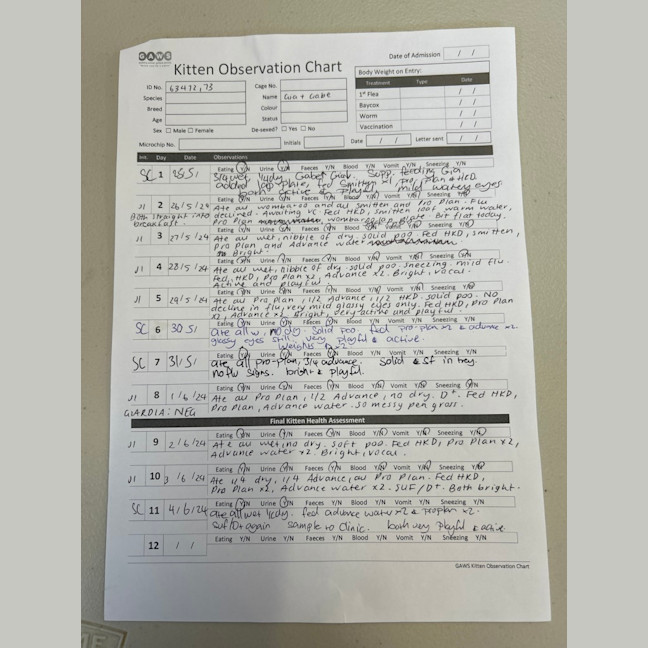 GAWS
Kitten Observation Chart
Date of Admission / /
ID No. 63472,73
Species
Breed
Age
Sex ☐ Male ☐ Female
Microchip No.
Cage No.
Name Gia + Gabe
Colour
Status
De-sexed? ☐ Yes ☐ No
Initials
Date / /
Letter sent / /
Body Weight on Entry:
Treatment Type Date
1st Flea / /
Baycox / /
Worm / /
Vaccination / /
Init. Day Date Observations
Eating Y/N Urine Y/N Faeces Y/N Blood Y/N Vomit Y/N Sneezing Y/N
SC 1 25/5/ 3/4 wet, Gabe Supp. feeding Gia
added lap plate, fed Smitten x1 Pro Plan & HKD
both active & playful. mild watery eyes
Eating Y/N Urine Y/N Faeces Y/N Blood Y/N Vomit Y/N Sneezing Y/N
JI 2 26/5/24 Ate all wombaroo and all smitten and Pro Plan. Flu
Both straight into breakfast.
declined. Awaiting VC. Fed HKD, smitten, warm water,
Pro Plan wombaroo, lap plate. Bit flat today.
Eating Y/N Urine Y/N Faeces Y/N Blood Y/N Vomit Y/N Sneezing Y/N
JI 3 27/5/24 Ate all wet, nibble of dry. solid poo. Fed HKD, smitten,
Pro Plan and Advance water
Bright.
Eating Y/N Urine Y/N Faeces Y/N Blood Y/N Vomit Y/N Sneezing Y/N
JI 4 28/5/24 Ate all wet, nibble of dry. solid poo. Sneezing. mild flu.
Fed, HKD, Pro Plan x2, Advance x2. Bright, vocal.
Active and playful
Eating Y/N Urine Y/N Faeces Y/N Blood Y/N Vomit Y/N Sneezing Y/N
JI 5 29/5/24 Ate all Pro Plan, 1/2 Advance, 1/2 HKD. solid poo. No
decline in flu, very mild glassy eyes only. Fed HKD, Pro Plan
x2, Advance x2. Bright, very active and playful.
Eating Y/N Urine Y/N Faeces Y/N Blood Y/N Vomit Y/N Sneezing Y/N
SC 6 30/5/ ate all w, no dry. solid poo, fed pro-plan x2 & advance x2
glassy eyes still very playful & active.
Weighed x2
Eating Y/N Urine Y/N Faeces Y/N Blood Y/N Vomit Y/N Sneezing Y/N
SC 7 31/5/ ate all pro-plan, 3/4 advance. solid & sf in tray.
no flu signs. bright & playful.
Eating Y/N Urine Y/N Faeces Y/N Blood Y/N Vomit Y/N Sneezing Y/N
JI 8 1/6/24 Ate all Pro Plan, 1/2 Advance, no dry. D+. Fed HKD,
GIARDIA: NEG
Pro Plan, Advance water. So messy pen gross.
Final Kitten Health Assessment
Eating Y/N Urine Y/N Faeces Y/N Blood Y/N Vomit Y/N Sneezing Y/N
JI 9 2/6/24 Ate all wet, no dry. soft poo. Fed HKD, Pro Plan x2,
Advance water x2. Bright, vocal.
Eating Y/N Urine Y/N Faeces Y/N Blood Y/N Vomit Y/N Sneezing Y/N
JI 10 3/6/24 Ate 1/4 dry, 1/4 Advance, all Pro Plan. Fed HKD,
Pro Plan x2, Advance water x2. SUF/D+. Both bright.
Eating Y/N Urine Y/N Faeces Y/N Blood Y/N Vomit Y/N Sneezing Y/N
SC 11 4/6/24 ate all wet dry. fed advance water x2 & proplan x2.
suf/D+ again sample to clinic. both very playful & active.
Eating Y/N Urine Y/N Faeces Y/N Blood Y/N Vomit Y/N Sneezing Y/N
12 / /
GAWS Kitten Observation Chart